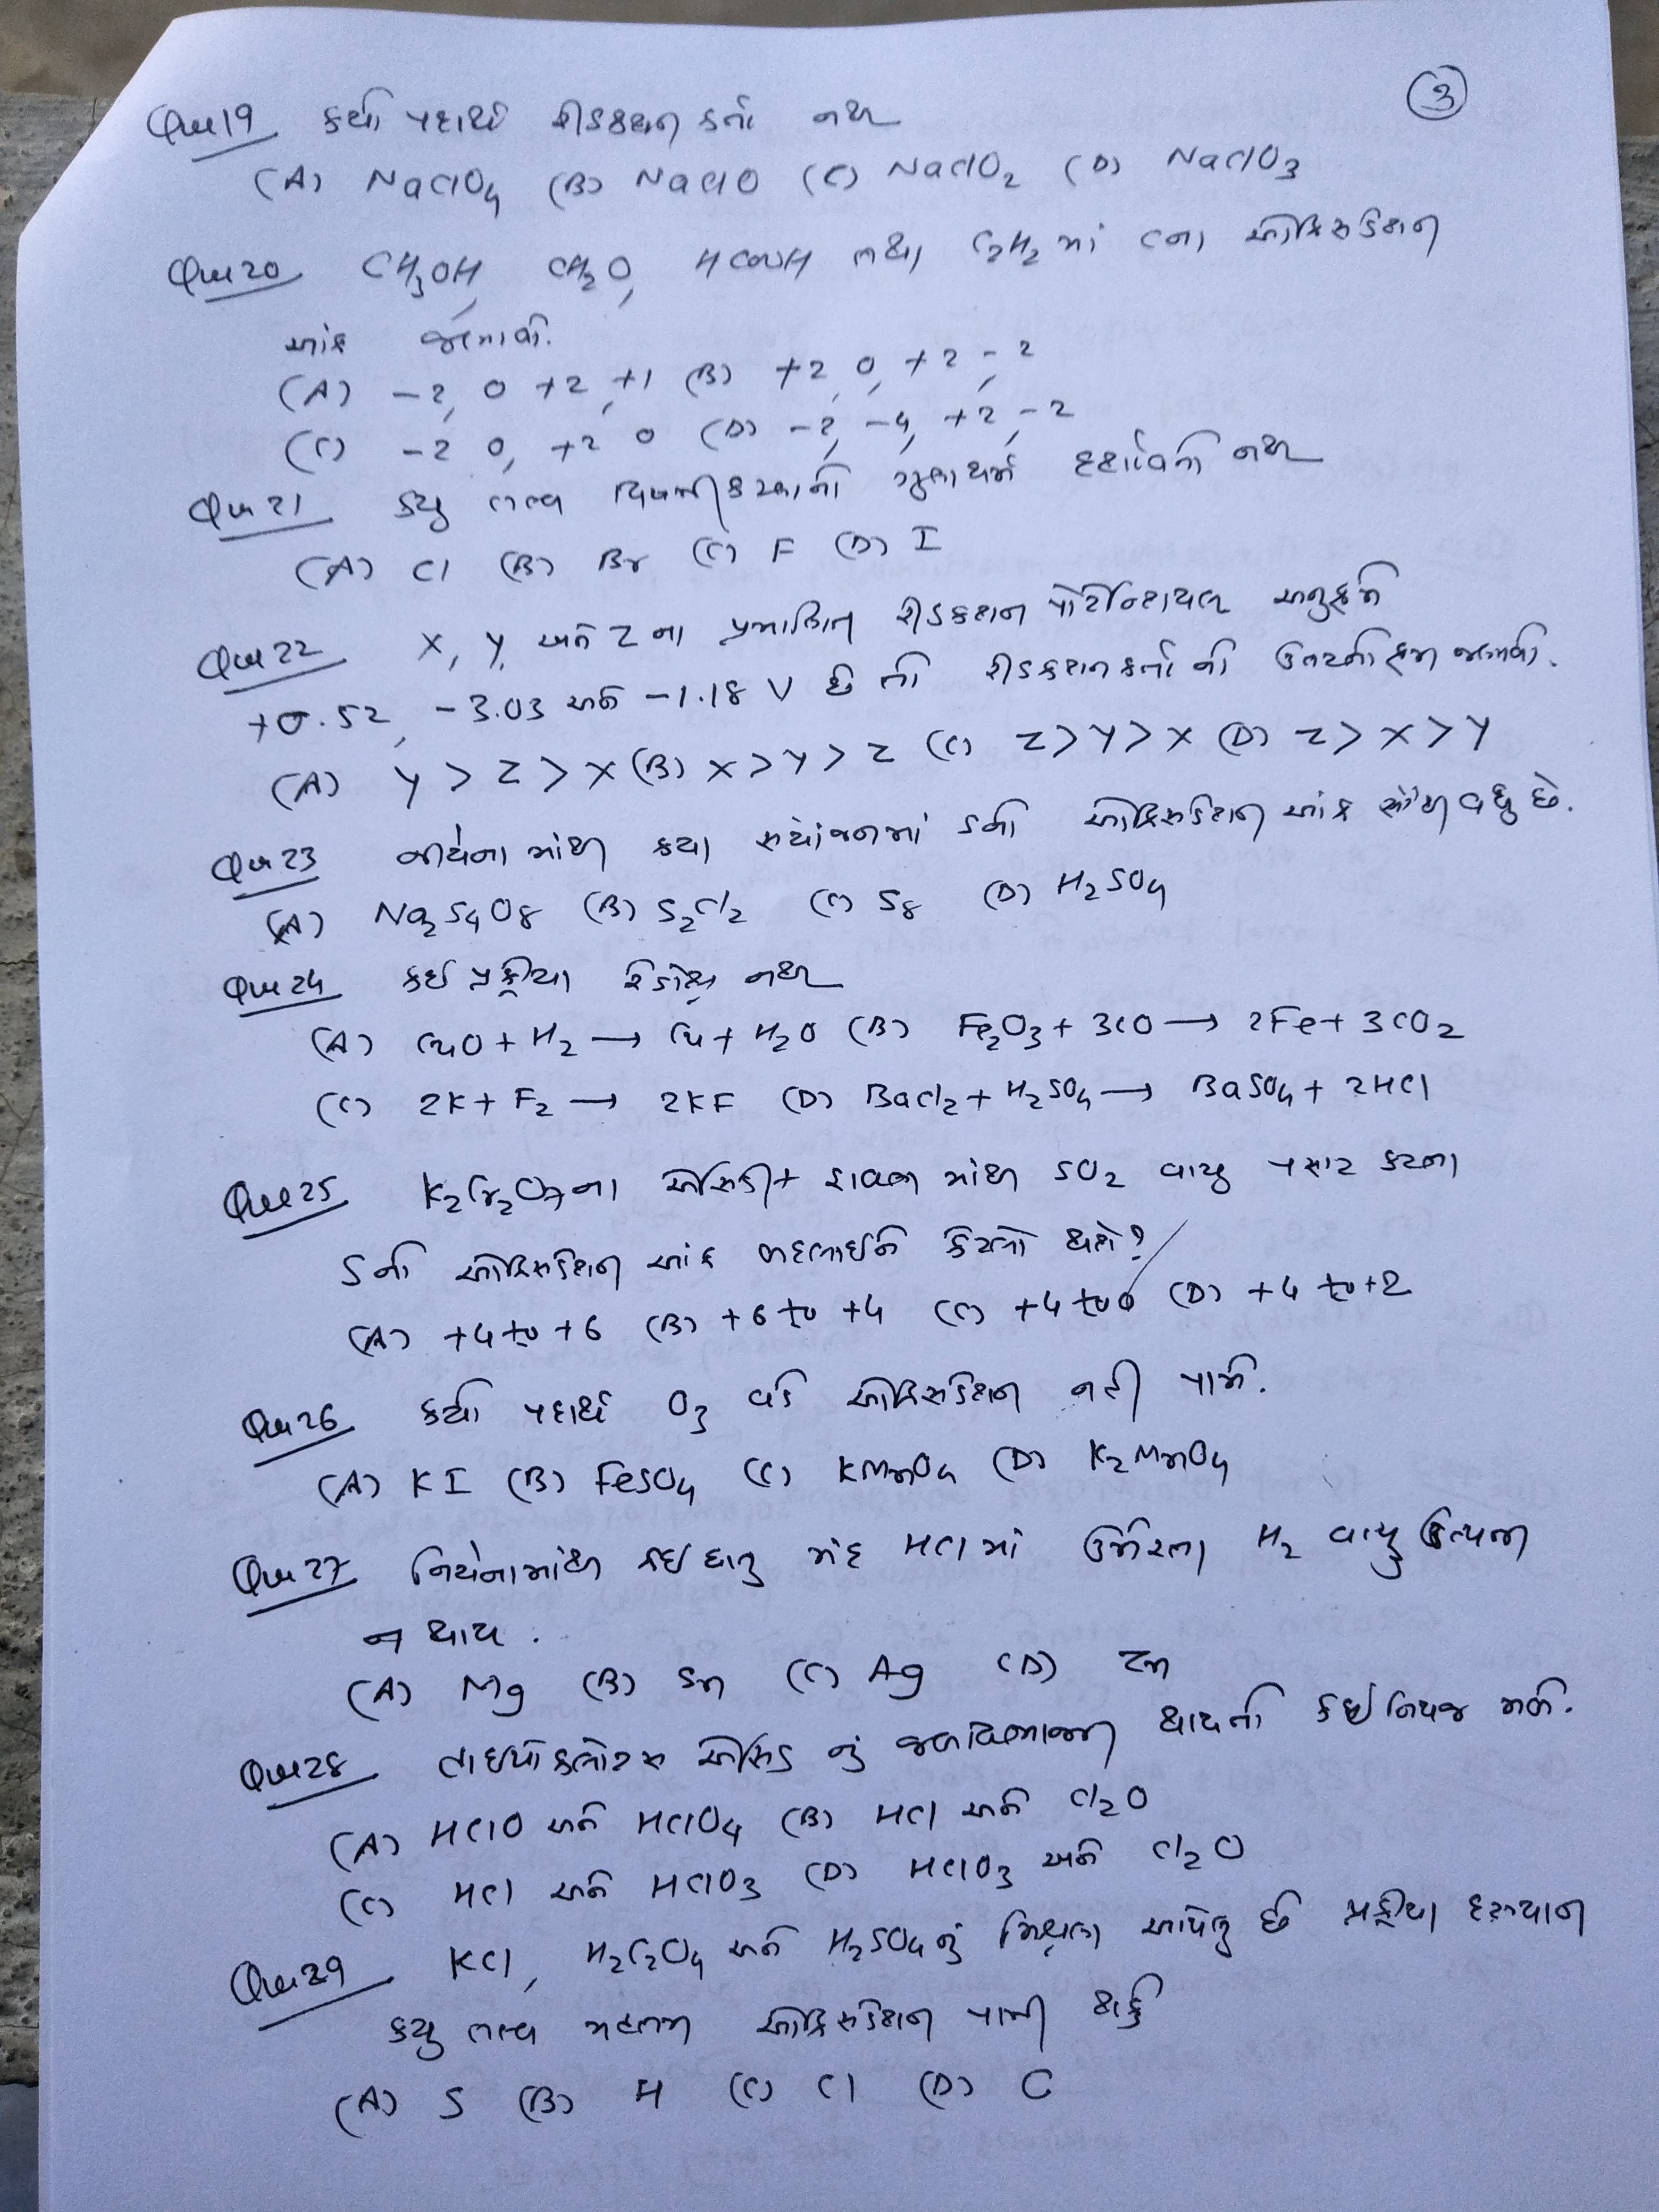 3
Que 19 કયો પદાર્થ રીડક્શન કર્તા નથી
(A) NaClO4 (B) NaClO (C) NaClO2 (D) NaClO3
Que 20 CH3OH, CH2O, HCOOH તથા C2H2 માં C ના ઓક્સિડેશન
આંક જણાવો.
(A) -2, 0 +2, +1 (B) +2, 0, +2, -2
(C) -2 0, +2 0 (D) -2, -4, +2, -2
Que 21 કયુ તત્વ વિષમીકરણનો ગુણધર્મ દર્શાવતો નથી
(A) Cl (B) Br (C) F (D) I
Que 22 X, Y, અને Z ના પ્રમાણિત રીડક્શન પોટેન્શિયલ અનુક્રમે
+0.52, -3.03 અને -1.18 V છે તો રીડક્શનકર્તા નો ઉતરતો ક્રમ જણાવો.
(A) Y > Z > X (B) X > Y > Z (C) Z > Y > X (D) Z > X > Y
Que 23 નીચેના માંથી કયા સંયોજનમાં S નો ઓક્સિડેશન આંક સૌથી વધુ છે.
(A) Na2S4O8 (B) S2Cl2 (C) S8 (D) H2SO4
Que 24 કઇ પ્રક્રીયા રેડોક્ષ નથી
(A) CuO + H2 → Cu + H2O (B) Fe2O3 + 3CO → 2Fe + 3CO2
(C) 2K + F2 → 2KF (D) BaCl2 + H2SO4 → BaSO4 + 2HCl
Que 25 K2Cr2O7 ના એસિડીક દ્રાવણ માંથી SO2 વાયુ પસાર કરતા
S નો ઓક્સિડેશન આંક બદલાઇને કેટલો થશે?
(A) +4 to +6 (B) +6 to +4 (C) +4 to 0 (D) +4 to +2
Que 26 કયો પદાર્થ O3 વડે ઓક્સિડેશન નહી પામે.
(A) KI (B) FeSO4 (C) KMnO4 (D) K2MnO4
Que 27 નિચેનામાંથી કઇ ધાતુ મંદ HCl માં ઉમેરતા H2 વાયુ ઉત્પન્ન
ન થાય.
(A) Mg (B) Sn (C) Ag (D) Zn
Que 28 હાઇપોક્લોરસ એસિડ નું જળવિભાજન થાયતો કઇ નિપજ મળે.
(A) HClO અને HClO4 (B) HCl અને Cl2O
(C) HCl અને HClO3 (D) HClO3 અને Cl2O
Que 29 KCl, H2C2O4 અને H2SO4 નું મિશ્રણ આપેલુ છે પ્રક્રીયા દરમ્યાન
કયુ તત્વ મહત્તમ ઓક્સિડેશન પામી શકે
(A) S (B) H (C) Cl (D) C